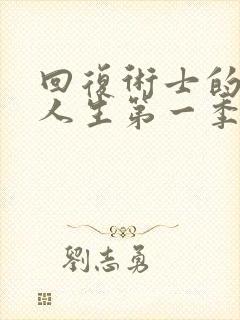 回復術士的
人生第一季
劉志勇